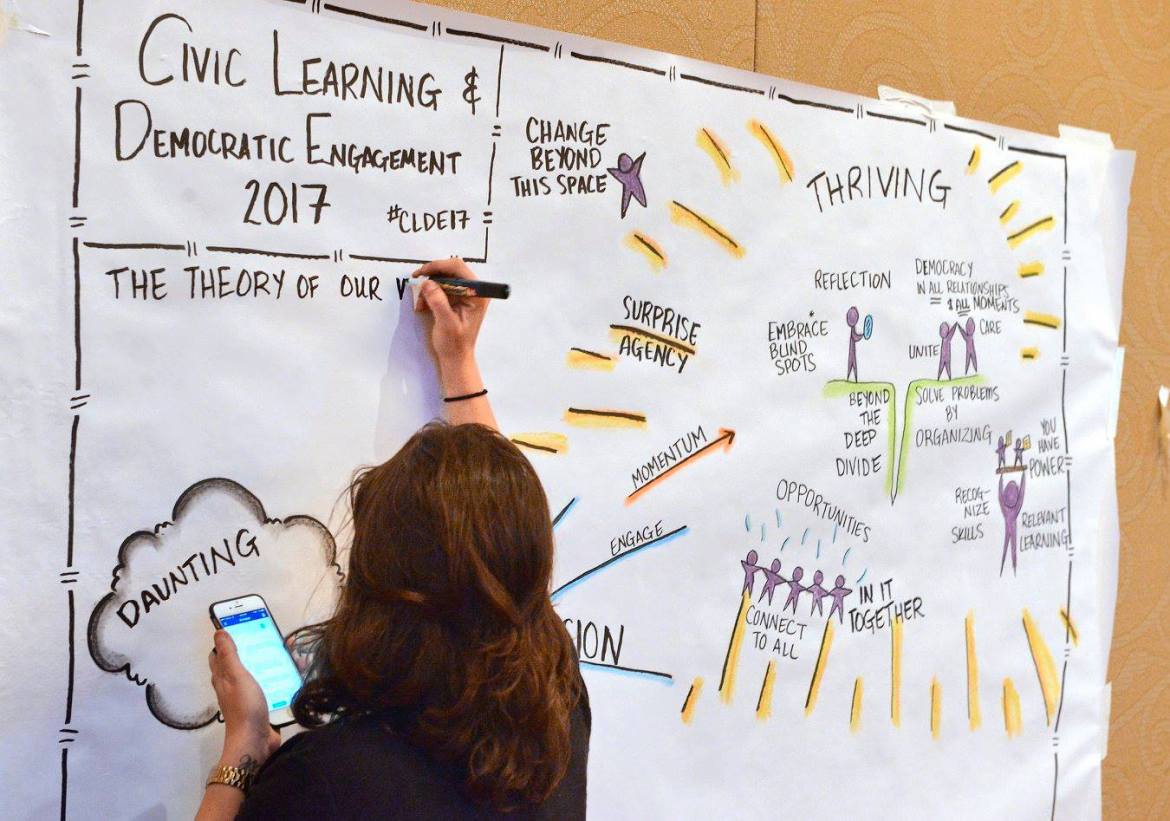 CIVIC LEARNING &
DEMOCRATIC ENGAGEMENT
2017
#CLDE17
THE THEORY OF OUR
CHANGE
BEYOND
THIS SPACE
THRIVING
SURPRISE
AGENCY
REFLECTION
EMBRACE
BLIND
SPOTS
DEMOCRACY
IN ALL RELATIONSHIPS
& ALL MOMENTS
CARE
UNITE
BEYOND
THE
DEEP
DIVIDE
SOLVE PROBLEMS
BY
ORGANIZING
YOU
HAVE
POWER
RECOG-
NIZE
SKILLS
RELEVANT
LEARNING
MOMENTUM
ENGAGE
OPPORTUNITIES
IN IT
TOGETHER
CONNECT
TO ALL
DAUNTING